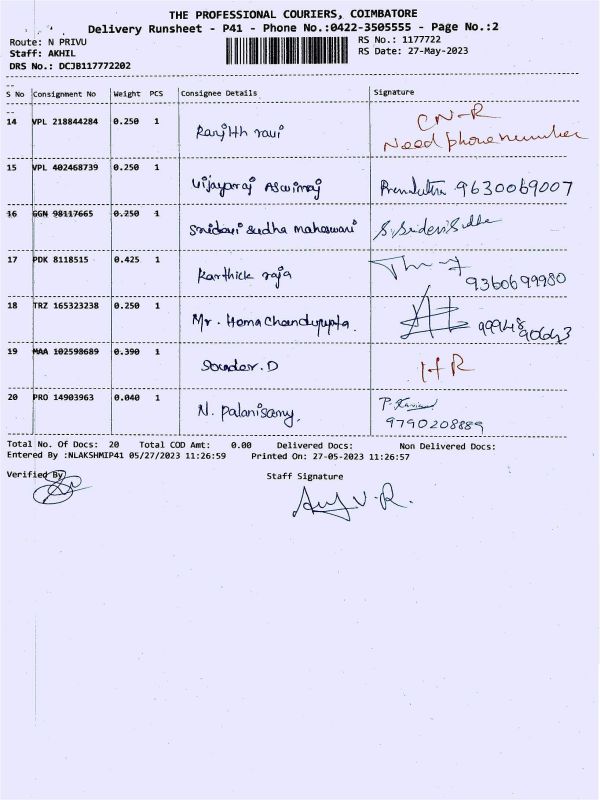 THE PROFESSIONAL COURIERS, COIMBATORE
Delivery Runsheet - P41 - Phone No.:0422-3505555 - Page No.:2
Route: N PRIVU
RS No.: 1177722
Staff: AKHIL
RS Date: 27-May-2023
DRS No.: DCJB117772202
S No Consignment No Weight PCS Consignee Details Signature
14 VPL 218844284 0.250 1 Ranjith ravi CN-R
Need phone number
15 VPL 402468739 0.250 1 Vijayaraj Aswinraj 9630069007
16 GGN 98117665 0.250 1 Sridevi sudha maheswari S. Sridevi Sudha
17 PDK 8118515 0.425 1 Karthick raja 9360699980
18 TRZ 165323238 0.250 1 Mr. Hema Chandugupta.
19 MAA 102598689 0.390 1 Sounder. D HR
20 PRO 14903963 0.040 1 N. Palanisamy.
9790208889
Total No. Of Docs: 20 Total COD Amt: 0.00 Delivered Docs: Non Delivered Docs:
Entered By :NLAKSHMIP41 05/27/2023 11:26:59 Printed On: 27-05-2023 11:26:57
Verified By
Staff Signature